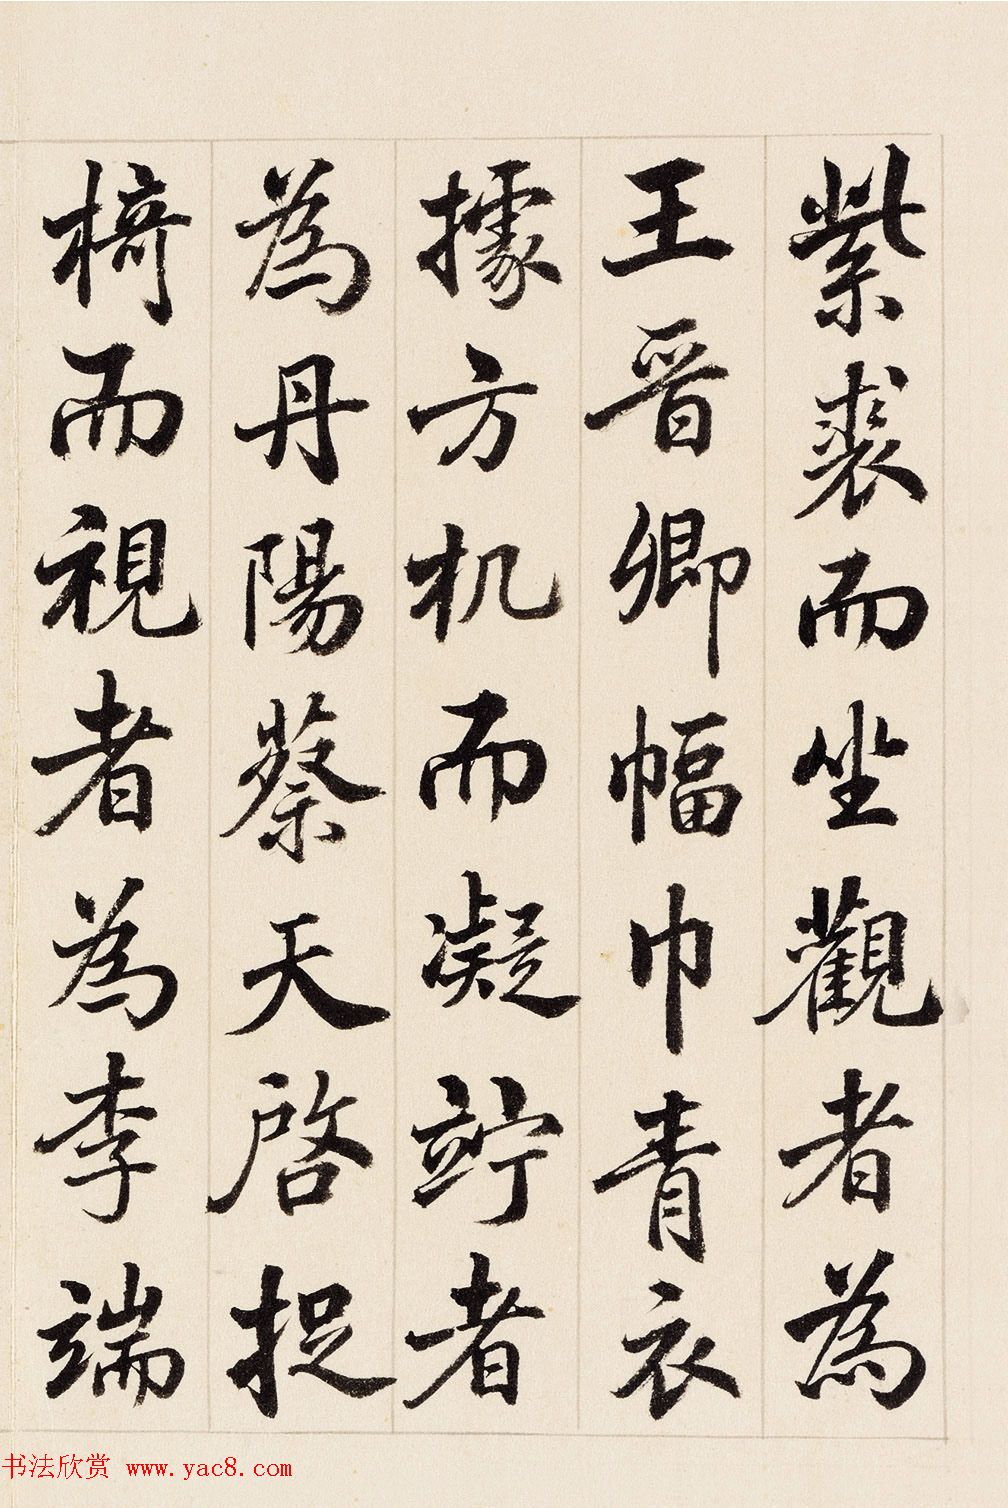 紫裘而坐觀者為
王晋卿幅巾青衣
據方机而凝竚者
為丹陽蔡天啓捉
椅而視者為李端
书法欣赏 www.yac8.com